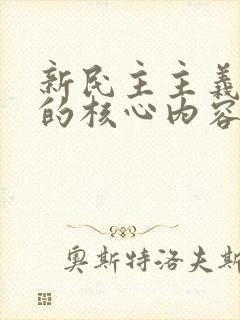 新民主主義
的核心内容
奥斯特洛夫斯